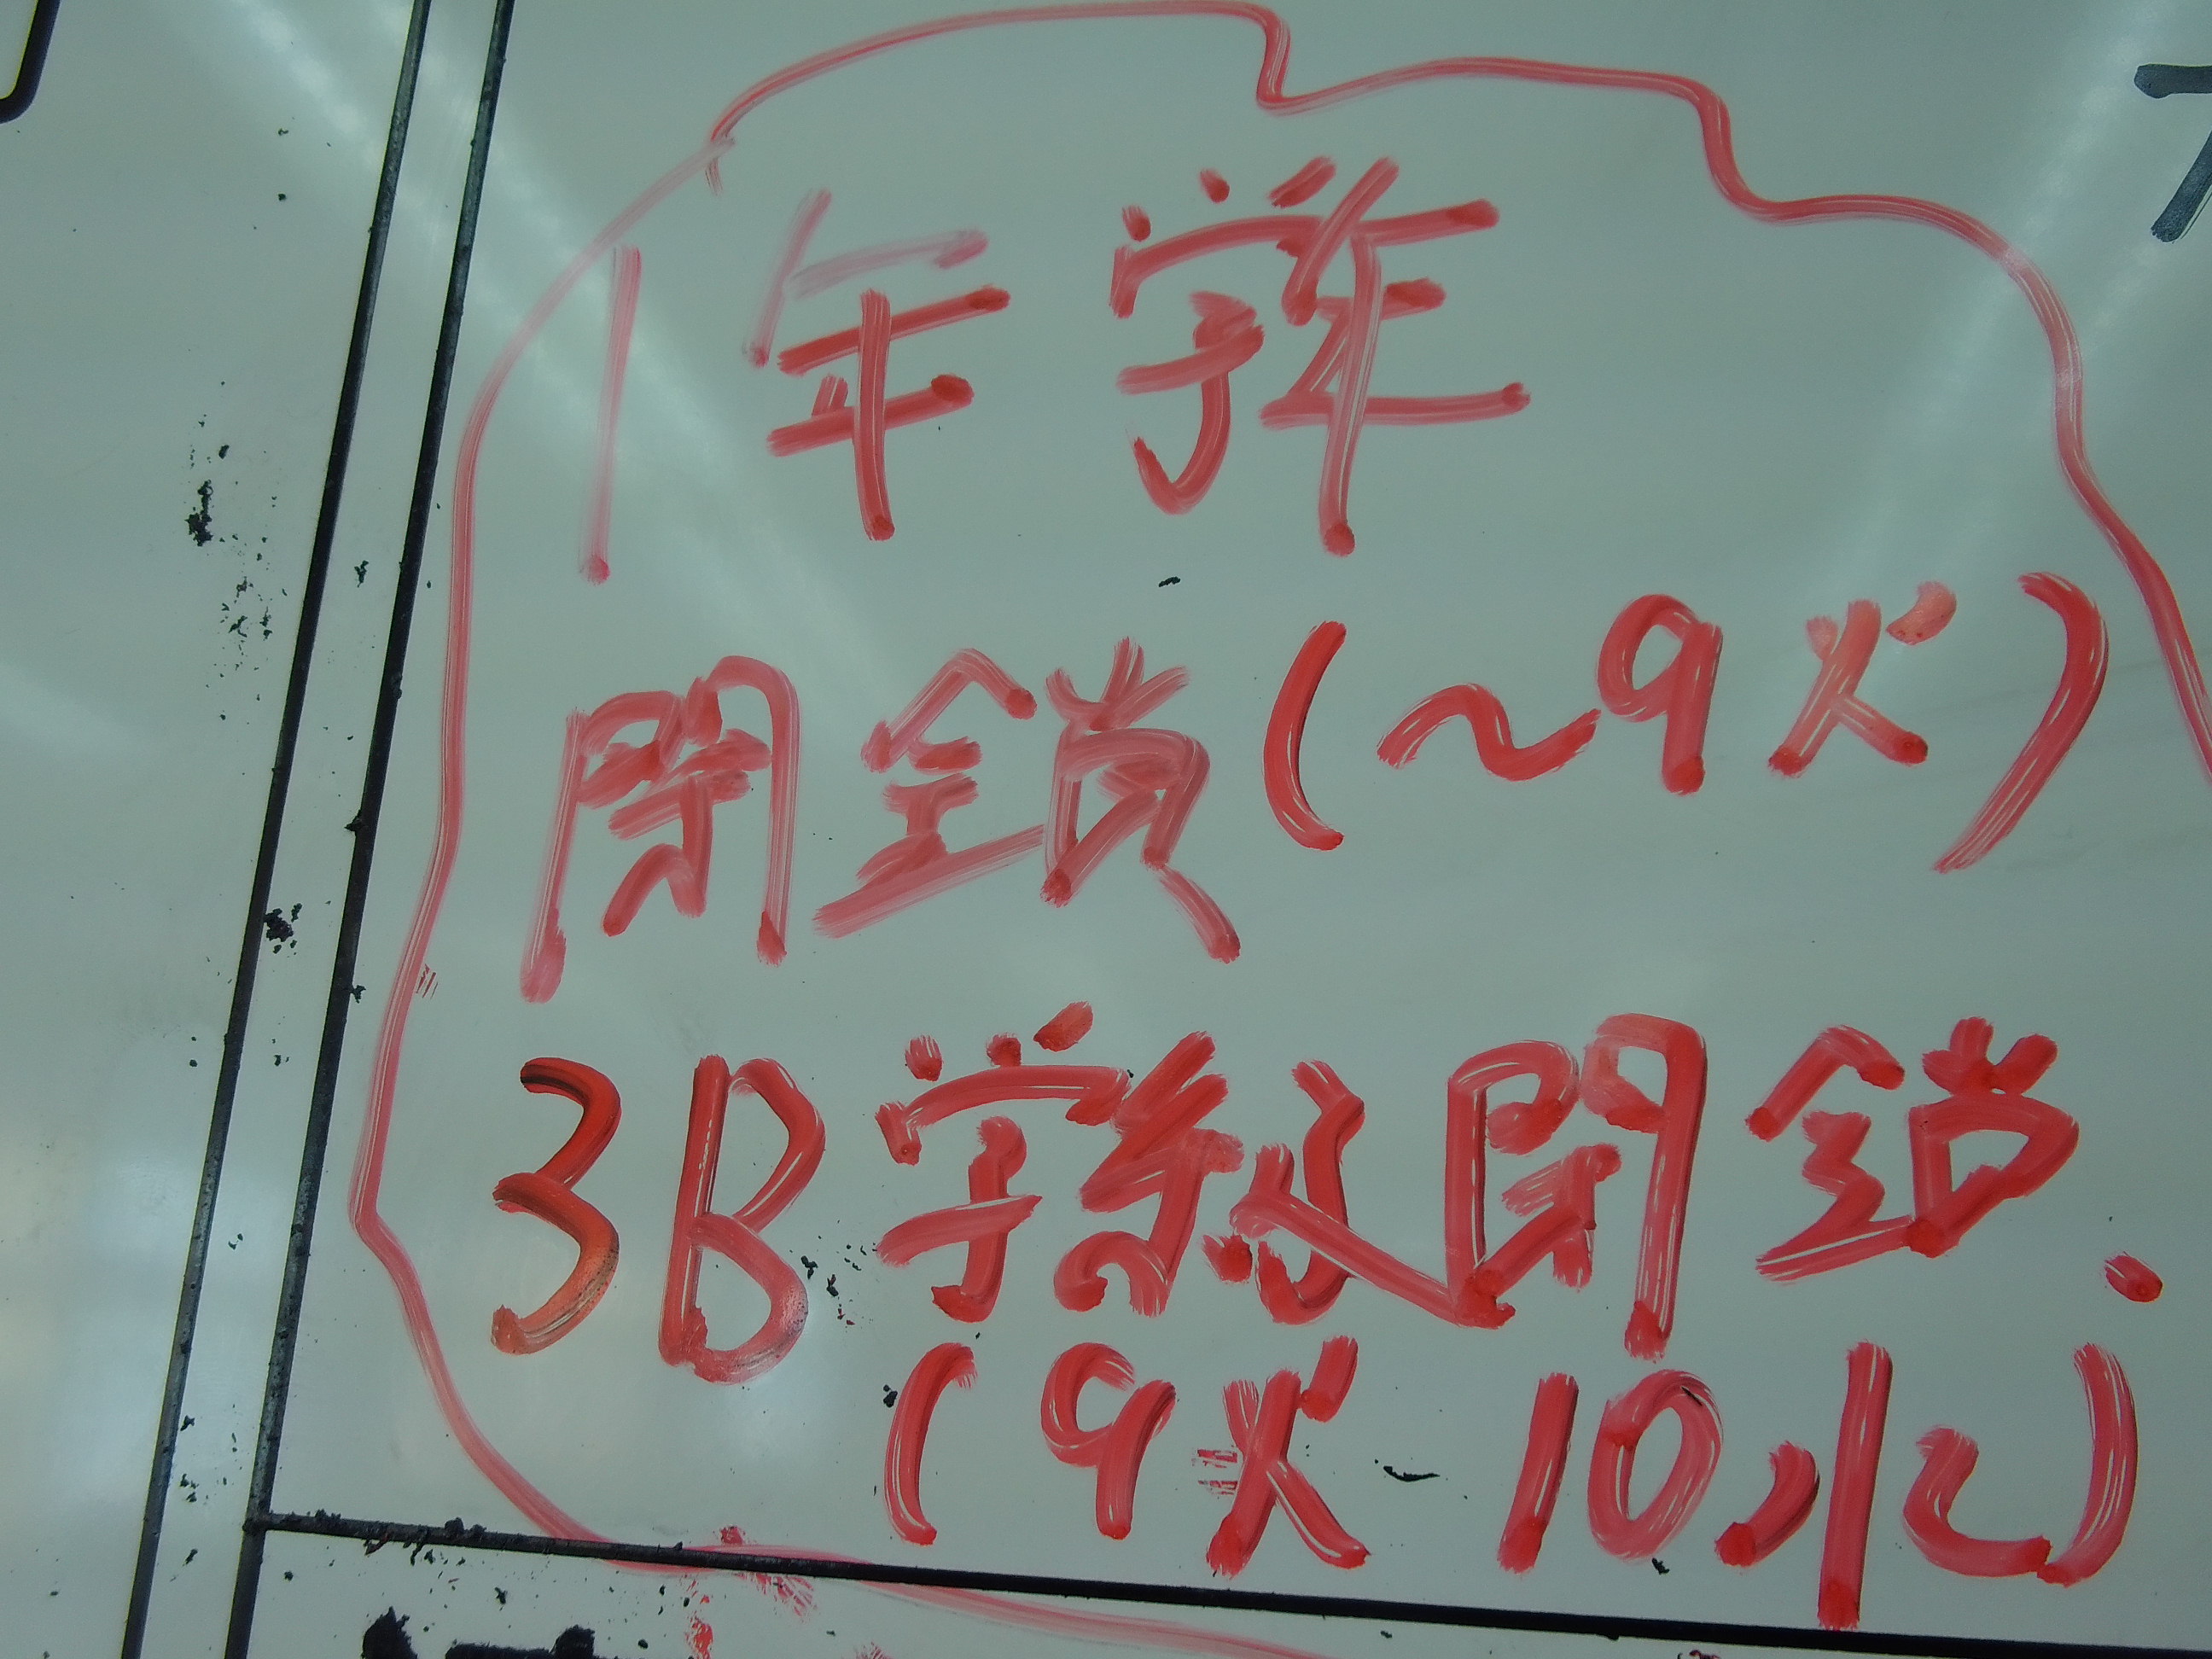 1年学年
閉鎖(~9火)
3B学級閉鎖.
(9火-10水)